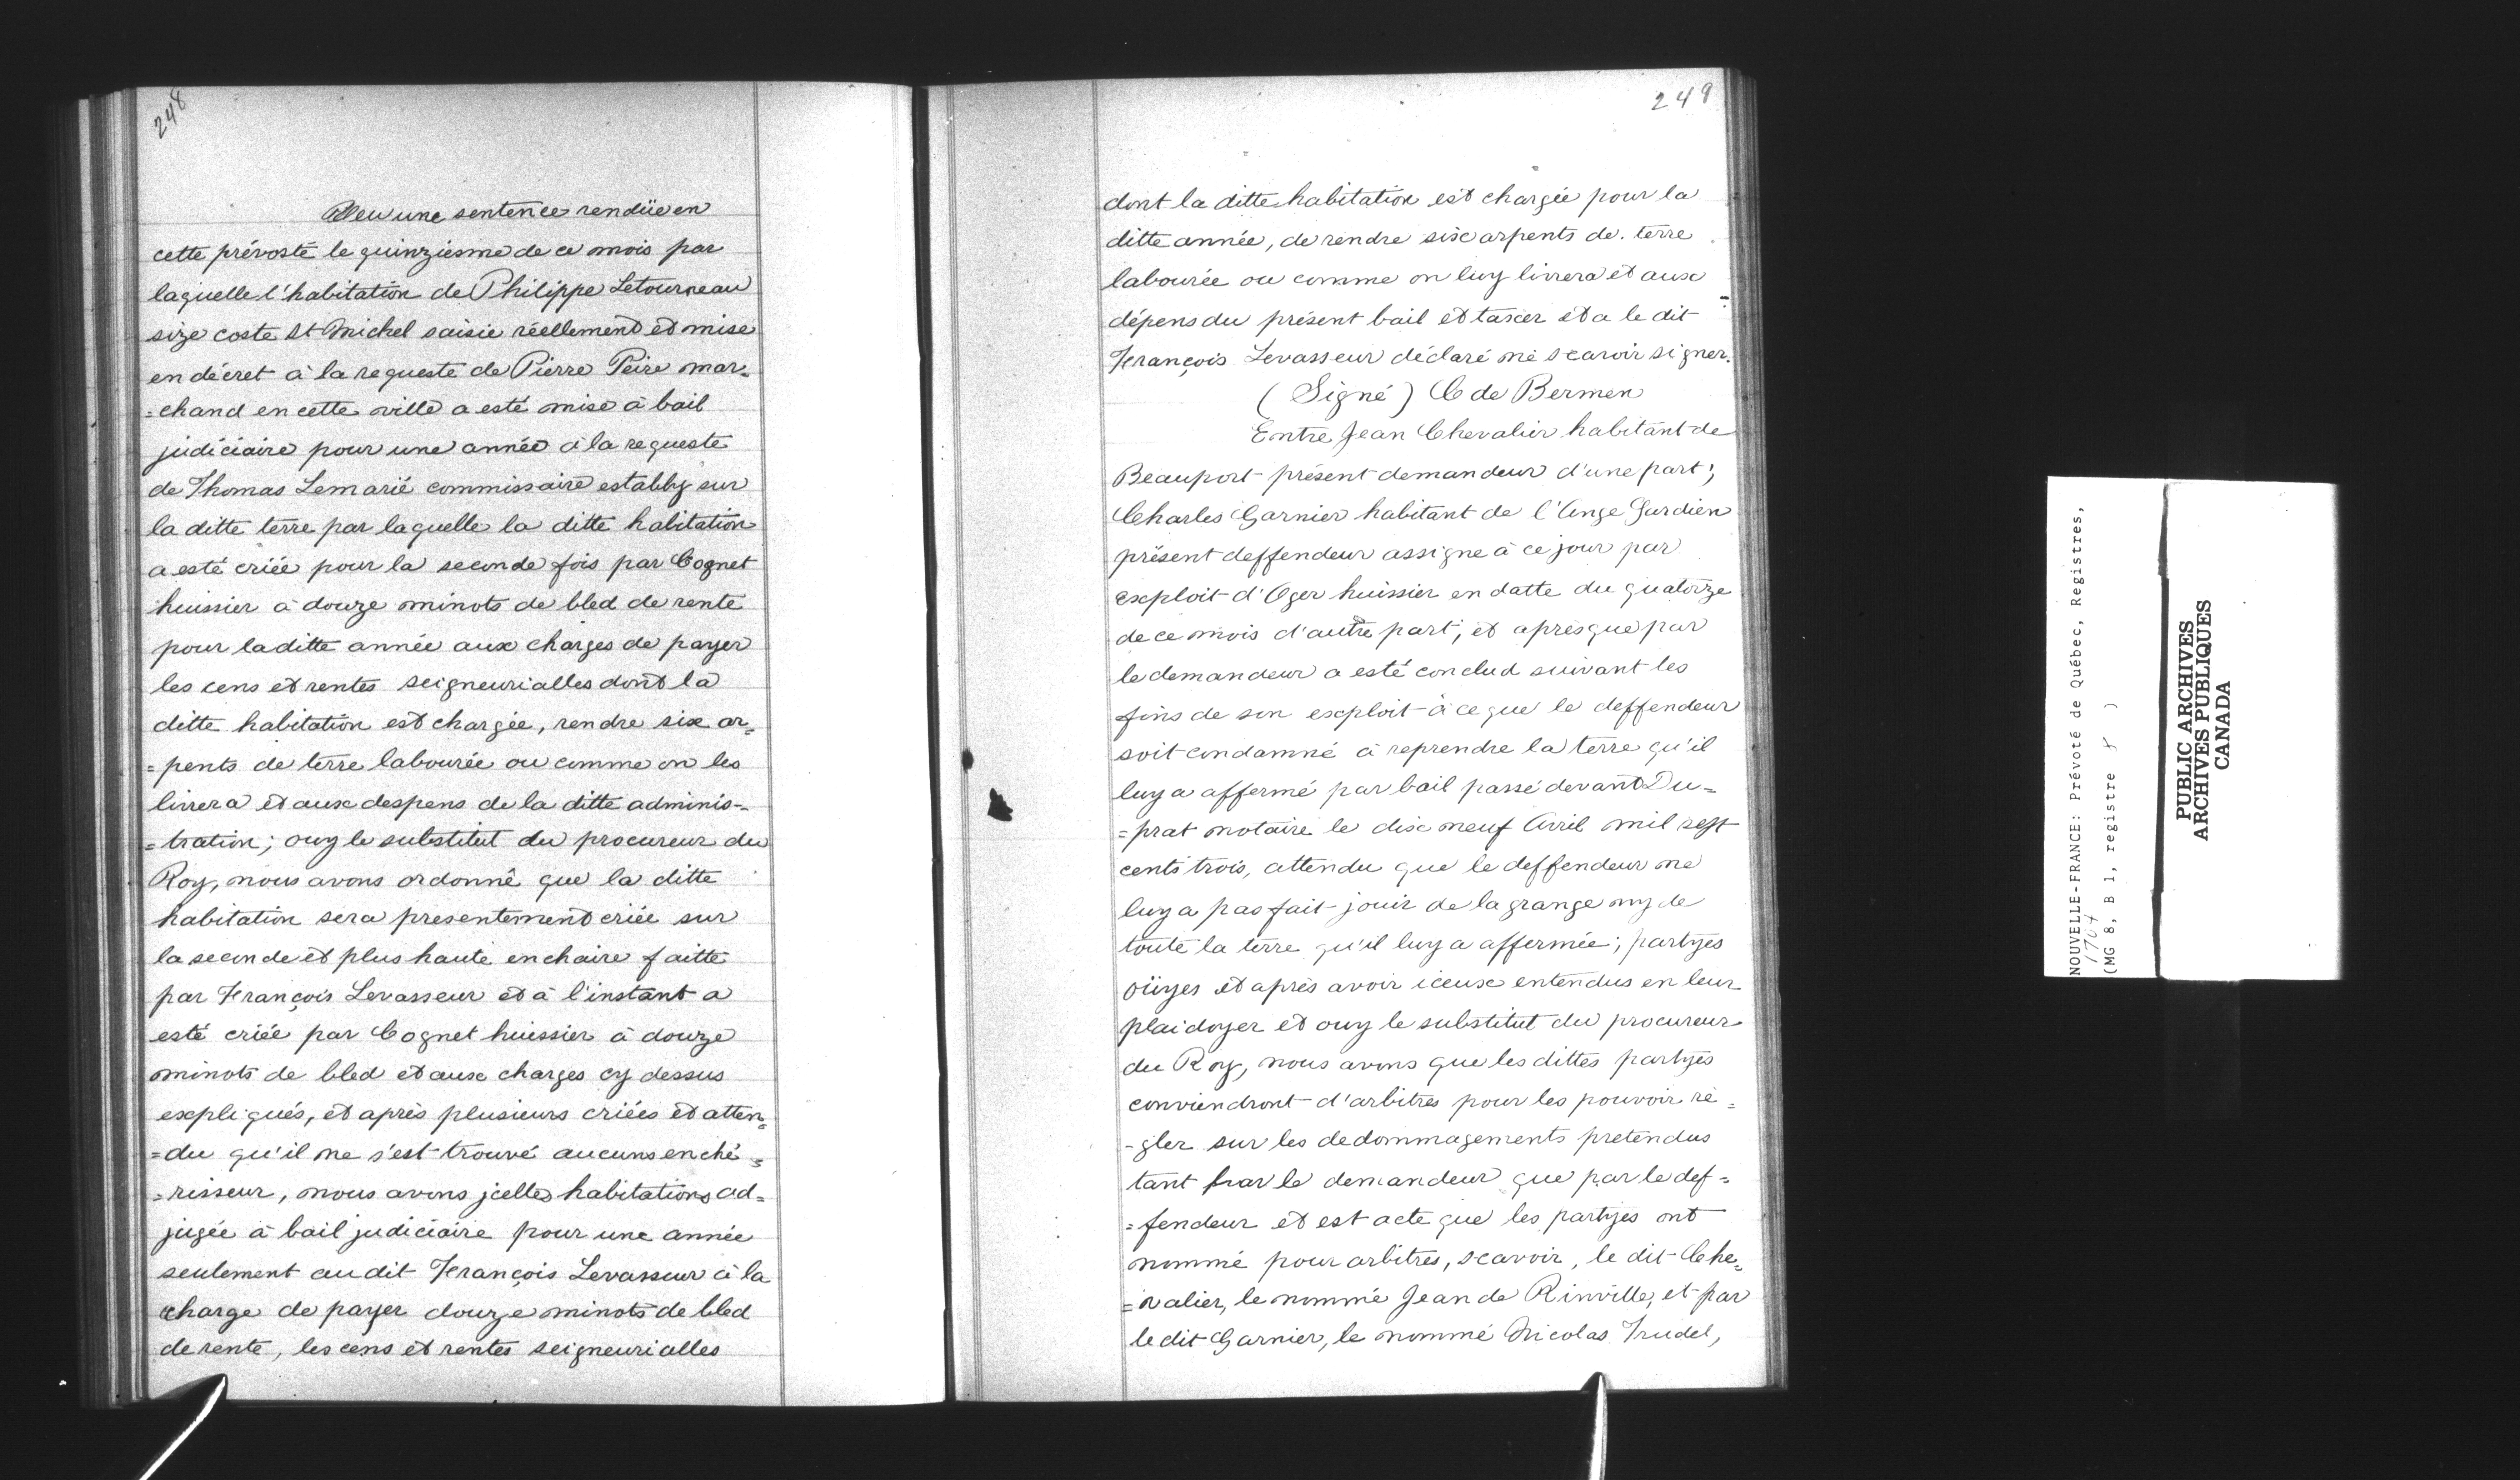 248
Veu une sentence rendüe en
cette prévosté le quinziesme de ce mois par
laquelle l'habitation de Philippe Letourneau
size coste St Michel saisie réellement et mise
en décret à la requeste de Pierre Peire mar=
=chand en cette ville a esté mise à bail
judiciaire pour une année à la requeste
de Thomas Lemarié commissaire estably sur
la ditte terre par laquelle la ditte habitation
a esté criée pour la seconde fois par Cognet
huissier à douze minots de bled de rente
pour la ditte année aux charges de payer
les cens et rentes seigneurialles dont la
ditte habitation est chargée, rendre six ar=
=pents de terre labourée ou comme on les
livrera et aux despens de la ditte adminis-
=tration; ouy le substitut du procureur du
Roy, nous avons ordonné que la ditte
habitation sera presentement criée sur
la seconde et plus haute enchaire faitte
par François Levasseur et à l'instant a
esté criée par Cognet huissier à douze
minots de bled et aux charges cy dessus
expliqués, et après plusieurs criées et atten=
=du qu'il ne s'est trouvé aucuns enché=
=risseur, nous avons jcelles habitations ad=
jugée à bail judiciaire pour une année
seulement au dit François Levasseur à la
charge de payer douze minots de bled
de rente, les cens et rentes seigneurialles
249
dont la ditte habitation est chargée pour la
ditte année, de rendre six arpents de terre
labourée ou comme on luy livrera et aux
dépens du présent bail et taxer et a le dit
François Levasseur déclaré ne scavoir signer.
(Signé) C de Bermen
Entre Jean Chevalier habitant de
Beauport présent demandeur d'une part;
Charles Garnier habitant de l'Ange Gardien
présent deffendeur assigne à ce jour par
exploit d'Oger huissier en datte du quatorze
de ce mois d'autre part; et après que par
le demandeur a esté conclud suivant les
fins de son exploit à ce que le deffendeur
soit condamné à reprendre la terre qu'il
luy a affermé par bail passé devant Du=
=prat notaire le dix neuf Avril mil sept
cents trois, attendu que le deffendeur ne
luy a pas fait jouir de la grange ny de
toute la terre qu'il luy a affermée; partyes
oüyes et après avoir iceux entendus en leur
plaidoyer et ouy le substitut du procureur
du Roy, nous avons que les dittes partyes
conviendront d'arbitres pour les pouvoir ré=
-gler sur les dedommagements pretendus
tant par le demandeur que par le def=
=fendeur et est acte que les partyes ont
nommé pour arbitres, scavoir, le dit Che=
=valier, le nommé Jean de Rinville, et par
le dit Garnier, le nommé Nicolas Trudel,
NOUVELLE-FRANCE: Prévoté de Québec, Registres,
1704
(MG 8, B 1, registre )
PUBLIC ARCHIVES
ARCHIVES PUBLIQUES
CANADA